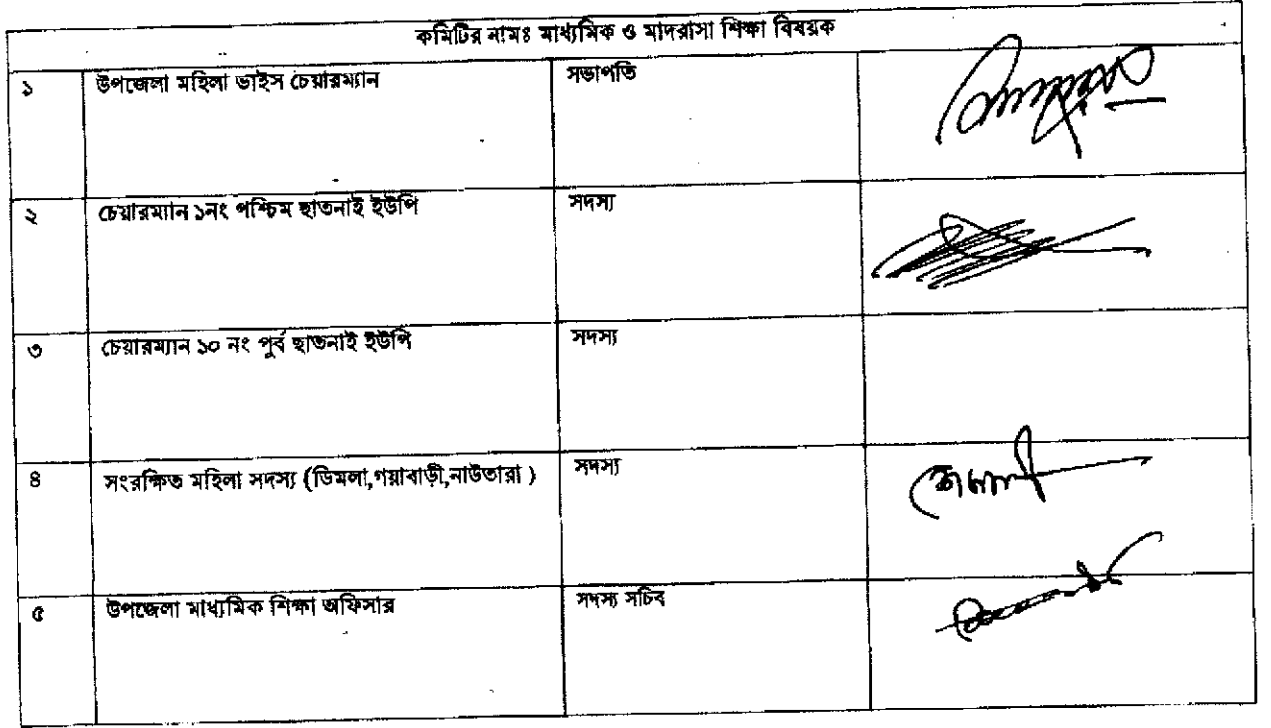 কমিটির নামঃ মাধ্যমিক ও মাদরাসা শিক্ষা বিষয়ক
১ উপজেলা মহিলা ভাইস চেয়ারম্যান সভাপতি
২ চেয়ারম্যান ১নং পশ্চিম ছাতনাই ইউপি সদস্য
৩ চেয়ারম্যান ১০ নং পুর্ব ছাতনাই ইউপি সদস্য
৪ সংরক্ষিত মহিলা সদস্য (ডিমলা,গয়াবাড়ী,নাউতারা ) সদস্য
৫ উপজেলা মাধ্যমিক শিক্ষা অফিসার সদস্য সচিব